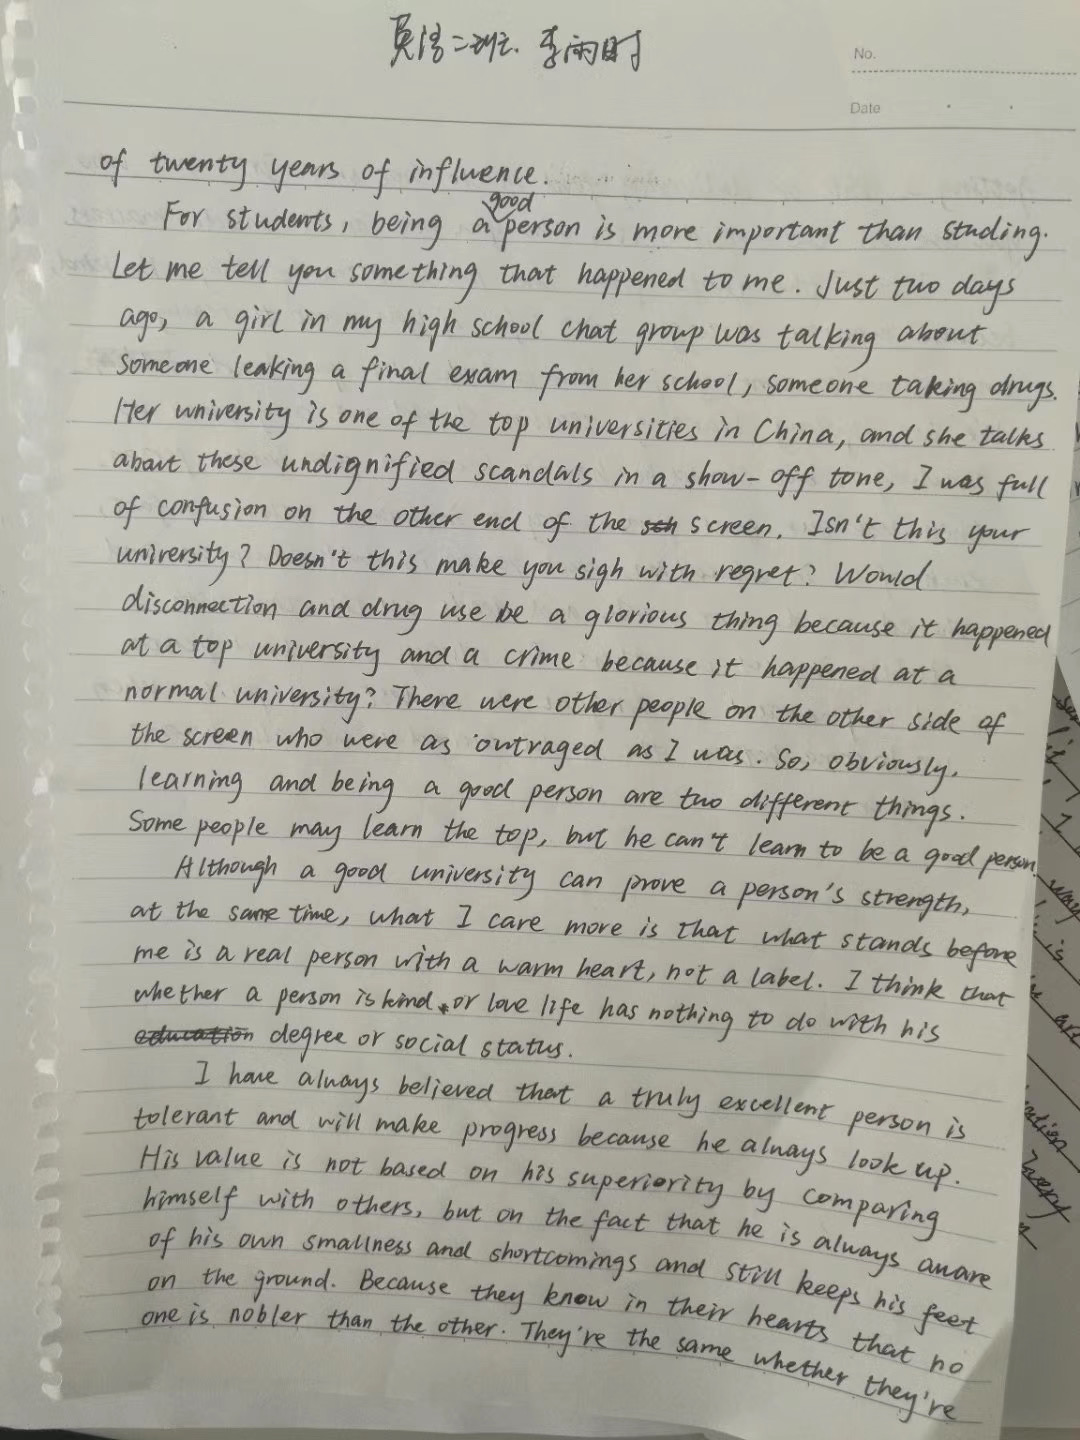 英语二班. 李雨时
No.
Date
of twenty years of influence.
For students, being a good person is more important than studing.
Let me tell you something that happened to me. Just two days
ago, a girl in my high school chat group was talking about
someone leaking a final exam from her school, someone taking drugs.
Her university is one of the top universities in China, and she talks
about these undignified scandals in a show-off tone, I was full
of confusion on the other end of the sch screen. Isn't this your
university? Doesn't this make you sigh with regret? Would
disconnection and drug use be a glorious thing because it happened
at a top university and a crime because it happened at a
normal university? There were other people on the other side of
the screen who were as outraged as I was. So, obviously,
learning and being a good person are two different things.
Some people may learn the top, but he can't learn to be a good person
Although a good university can prove a person's strength,
at the same time, what I care more is that what stands before
me is a real person with a warm heart, not a label. I think that
whether a person is kind or love life has nothing to do with his
education degree or social status.
I have always believed that a truly excellent person is
tolerant and will make progress because he always look up.
His value is not based on his superiority by comparing
himself with others, but on the fact that he is always aware
of his own smallness and shortcomings and still keeps his feet
on the ground. Because they know in their hearts that no
one is nobler than the other. They're the same whether they're